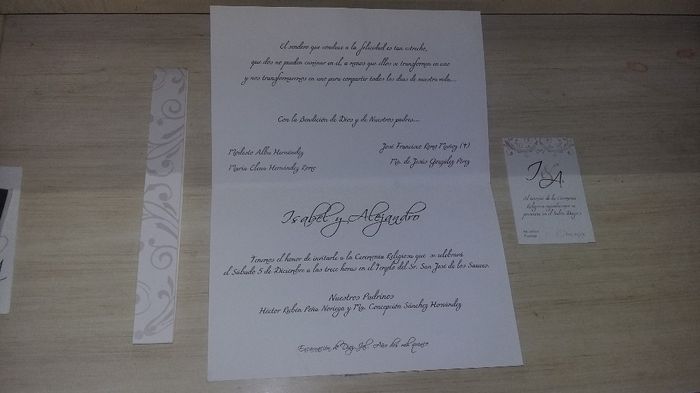 El sendero que conduce a la felicidad es tan estrecho,
que dos no pueden caminar en el, a menos que ellos se transformen en uno
y nos transformaremos en uno para compartir todos los dias de nuestra vida...
Con la Bendición de Dios y de Nuestros padres...
Modesto Alba Hernández
María Elena Hernández Romo
José Francisco Romo Muñoz (✝)
Ma. de Jesús González Pérez
Isabel y Alejandro
Tenemos el honor de invitarle a la Ceremonia Religiosa que se celebrará
el Sábado 5 de Diciembre a las trece horas en el Templo del Sr. San José de los Sauces.
Nuestros Padrinos
Héctor Rubén Peña Noriega y Ma. Concepción Sánchez Hernández
Encarnación de Díaz, Jal. Año dos mil quince
I & A.
Al término de la Ceremonia
Religiosa agradecemos su
presencia en el Salón